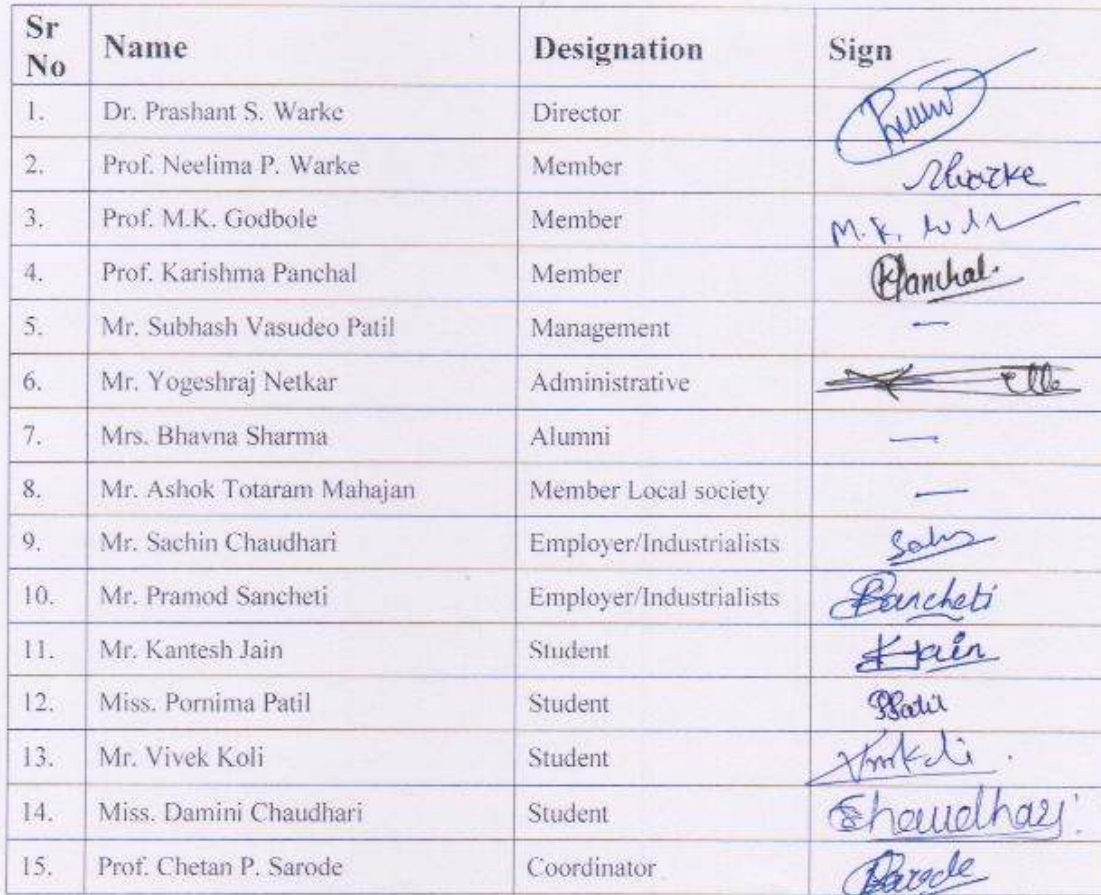 Sr No Name Designation Sign
1. Dr. Prashant S. Warke Director
2. Prof. Neelima P. Warke Member
3. Prof. M.K. Godbole Member M.K.
4. Prof. Karishma Panchal Member Panchal.
5. Mr. Subhash Vasudeo Patil Management —
6. Mr. Yogeshraj Netkar Administrative
7. Mrs. Bhavna Sharma Alumni —
8. Mr. Ashok Totaram Mahajan Member Local society —
9. Mr. Sachin Chaudhari Employer/Industrialists
10. Mr. Pramod Sancheti Employer/Industrialists Sancheti
11. Mr. Kantesh Jain Student KJain
12. Miss. Pornima Patil Student PPatil
13. Mr. Vivek Koli Student
14. Miss. Damini Chaudhari Student
15. Prof. Chetan P. Sarode Coordinator